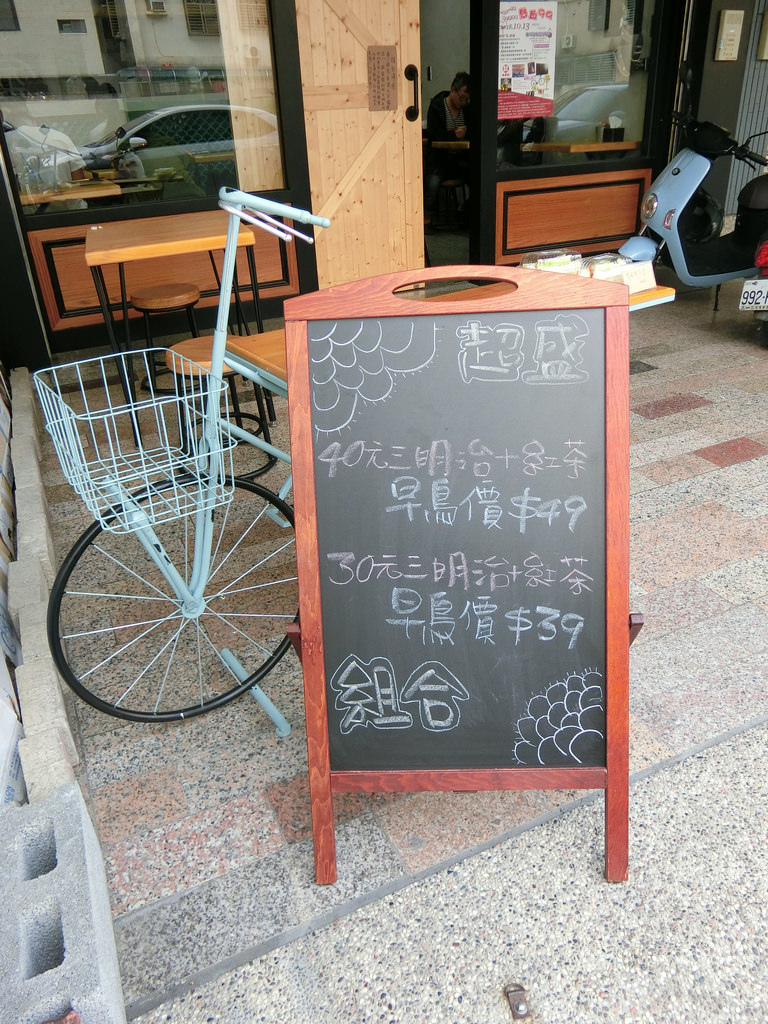 超盛
40元三明治+紅茶
早鳥價$49
30元三明治+紅茶
早鳥價$39
組合
992-